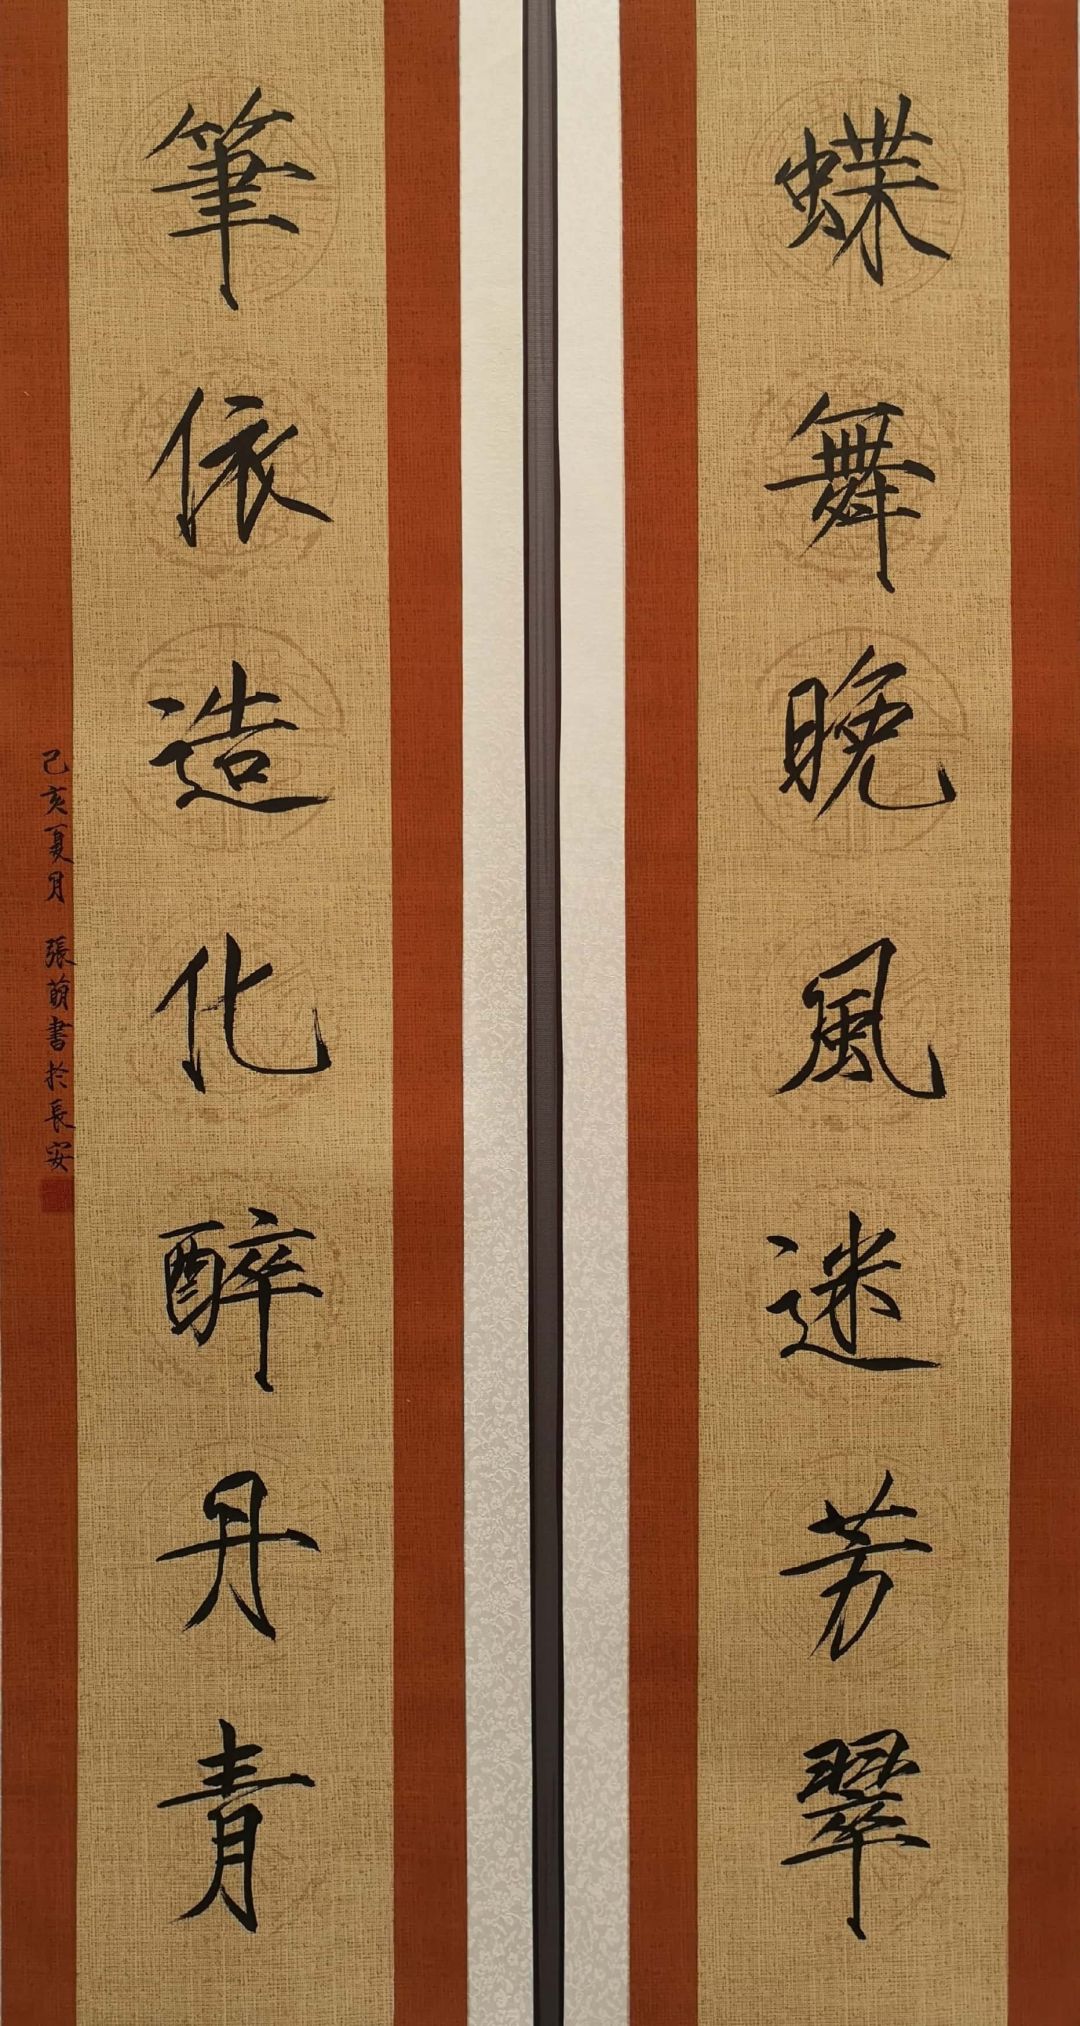 蝶舞晚風迷芳翠
筆依造化醉丹青
己亥夏月 張萌書於長安